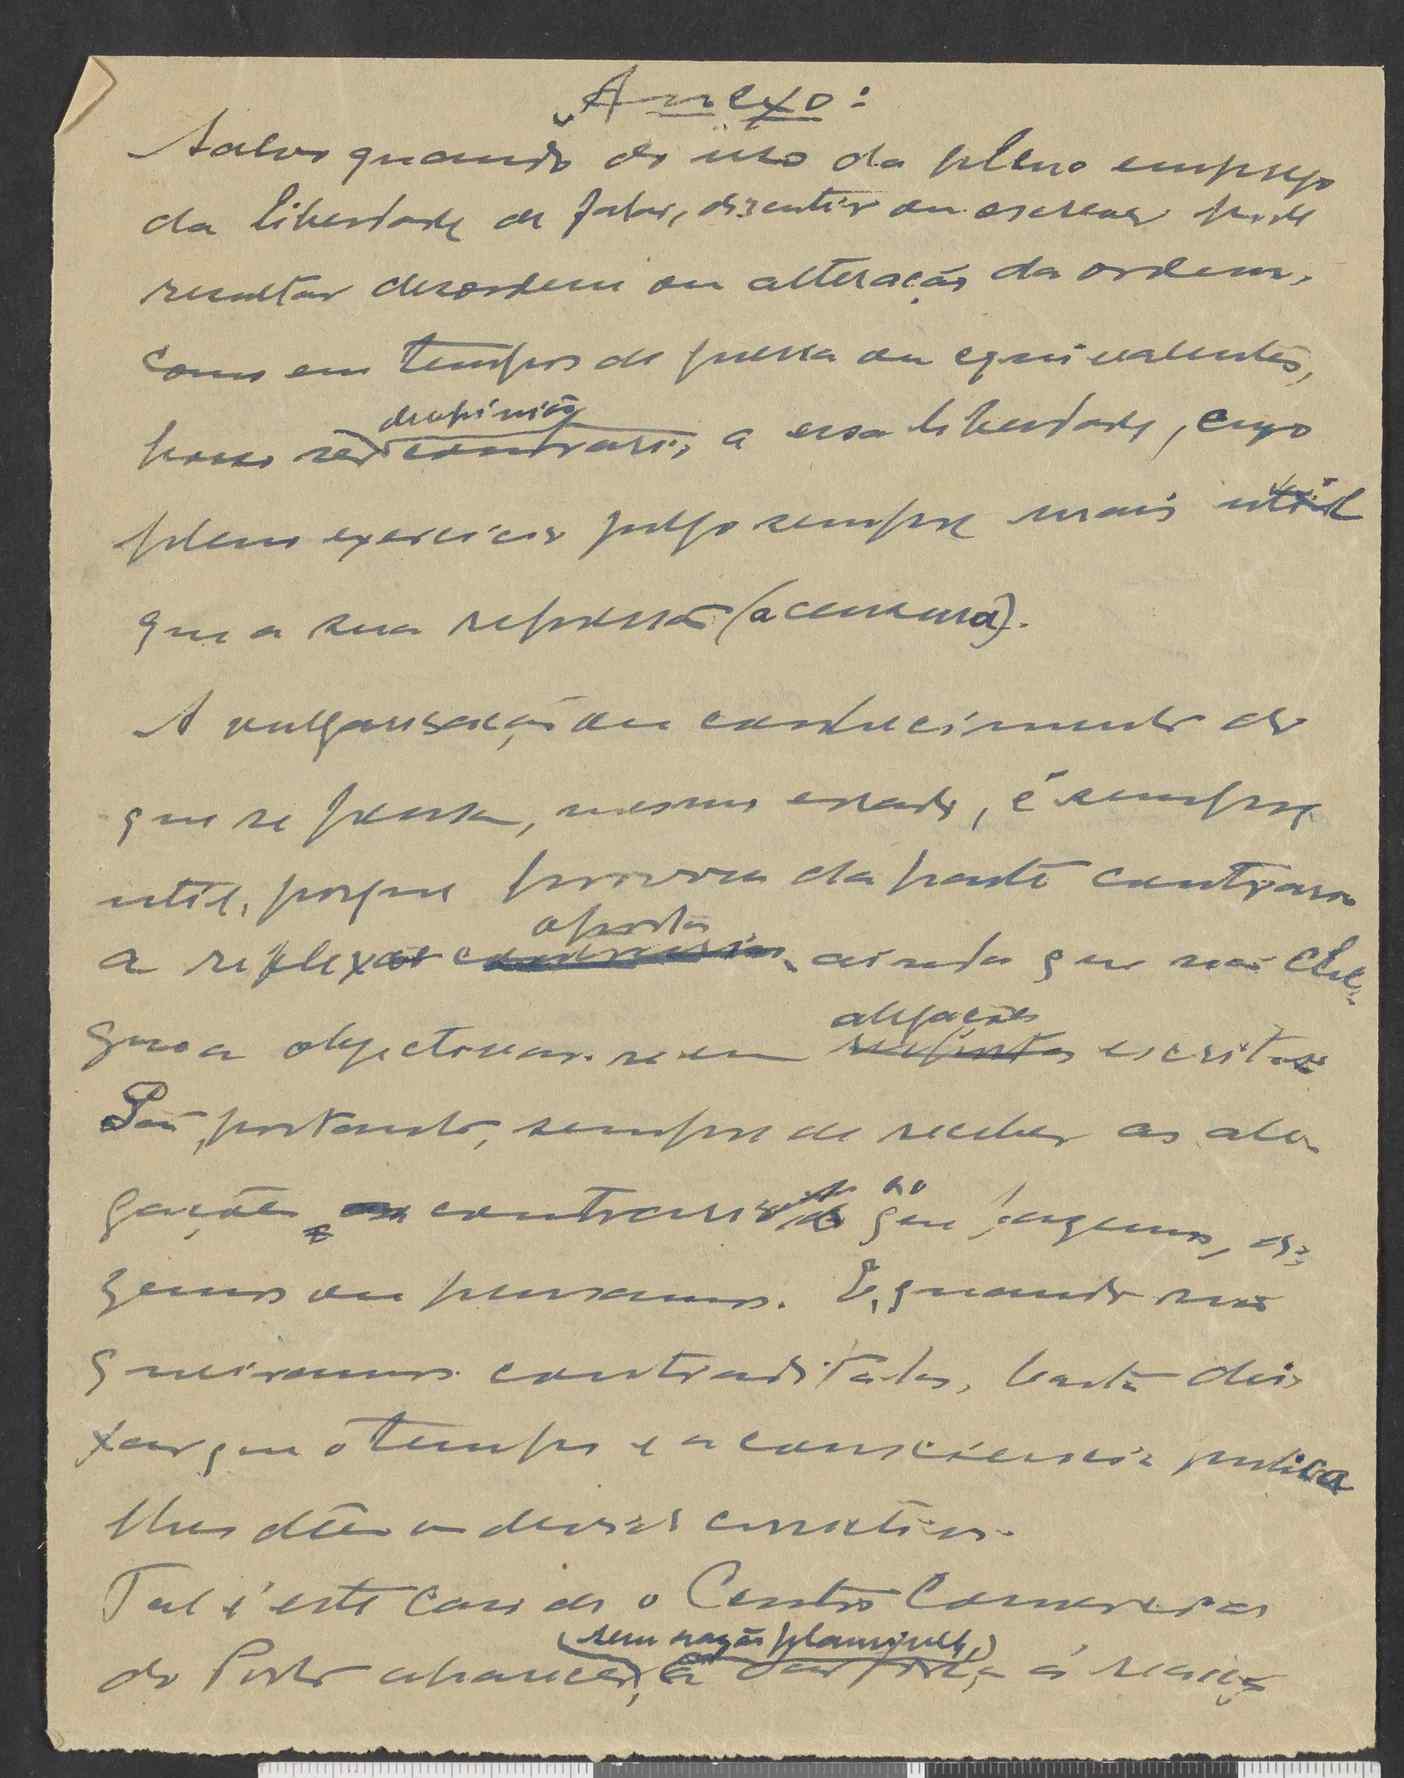 Anexo:
Salvo quando do uso da pleno emprego
da liberdade de falar, discutir ou escrever pode
resultar desordem ou alteração da ordem,
como em tempos de guerra ou equivalentes,
de opinião
posso ser contrario, a essa liberdade, cujo
pleno exercicio julgo sempre mais util
que a sua repressão (a censura).
A vulgarisação ou conhecimento do
que se pensa, mesmo errado, é sempre
util, porque provoca da parte contraria
oposta
a reflexão ainda que não che-
alegações
gue a objectivar-se em respostas escritas
São, portanto, sempre de receber as ale-
ao
gações contrarias que fazemos, di-
zemos ou pensamos. E, quando não
queiramos contradital-as, basta dei-
xar que o tempo e a consciencia publica
lhes dêem o devido correctivo.
Tal é este caso de o Centro Comercial
(sem razão plausivel,)
do Porto aparecer, a dar força á reacção